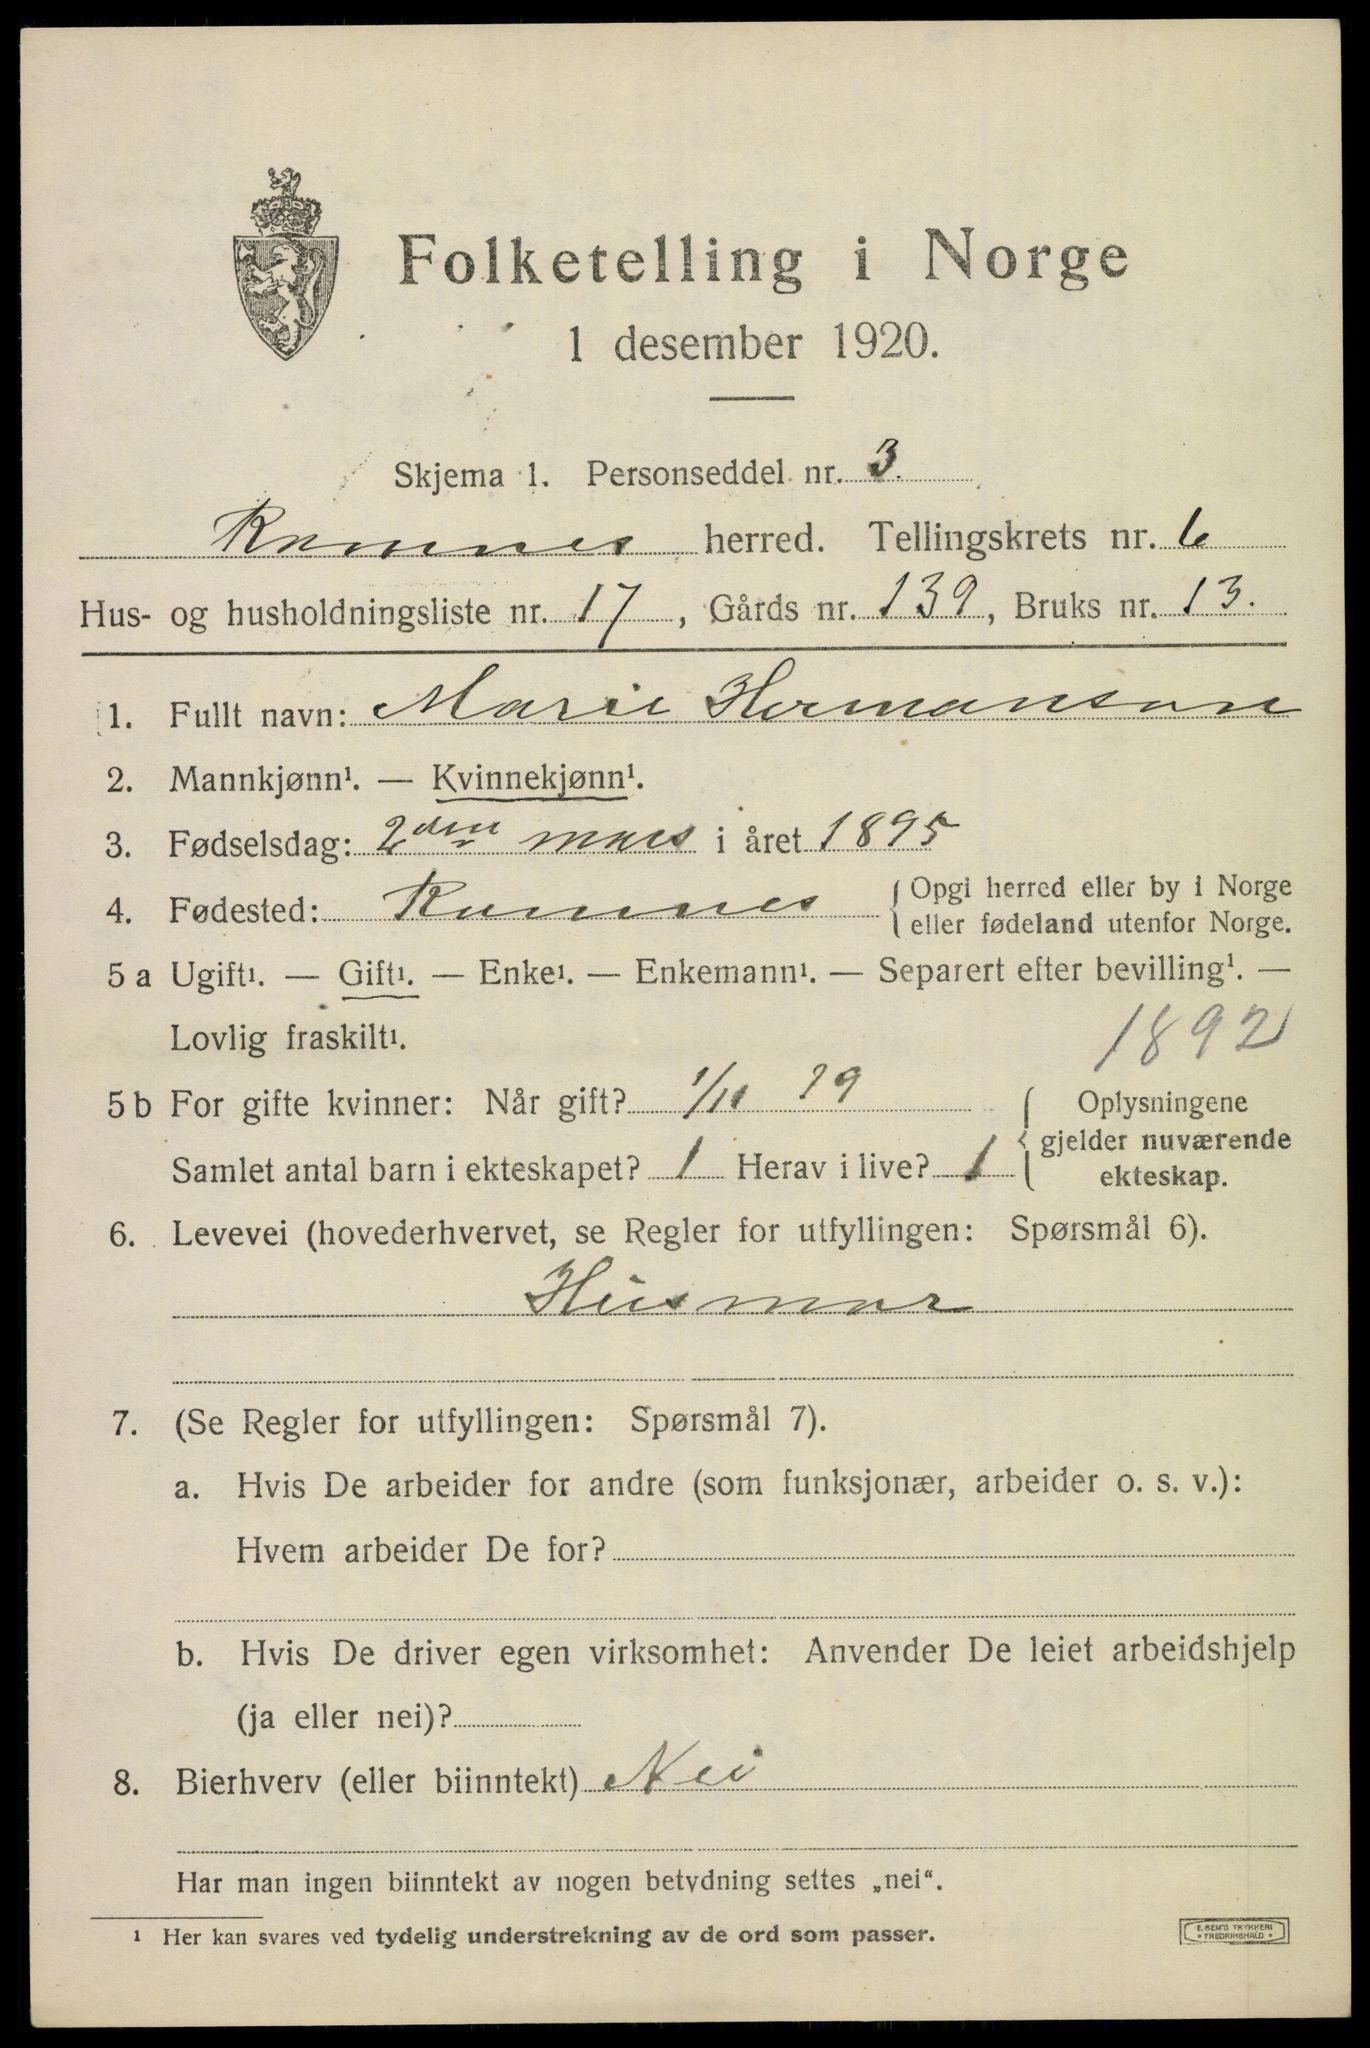 Folketelling i Norge
1 desember 1920.
Skjema 1. Personseddel nr. 3.
Ramnes herred. Tellingskrets nr. 6
Hus- og husholdningsliste nr. 17, Gårds nr. 139, Bruks nr. 13.
1. Fullt navn: Marie Hermansen
2. Mannkjønn¹. — Kvinnekjønn¹.
3. Fødselsdag: 2den mars i året 1895
4. Fødested: Ramnes { Opgi herred eller by i Norge
eller fødeland utenfor Norge.
5 a Ugift¹. — Gift¹. — Enke¹. — Enkemann¹. — Separert efter bevilling¹. —
Lovlig fraskilt¹.
1892
5 b For gifte kvinner: Når gift? 1/11 19
Samlet antal barn i ekteskapet? 1 Herav i live? 1
Oplysningene
gjelder nuværende
ekteskap.
6. Levevei (hovederhvervet, se Regler for utfyllingen: Spørsmål 6).
Husmor
7. (Se Regler for utfyllingen: Spørsmål 7).
a. Hvis De arbeider for andre (som funksjonær, arbeider o. s. v.):
Hvem arbeider De for?
b. Hvis De driver egen virksomhet: Anvender De leiet arbeidshjelp
(ja eller nei)?
8. Bierhverv (eller biinntekt) Nei
Har man ingen biinntekt av nogen betydning settes „nei“.
¹ Her kan svares ved tydelig understrekning av de ord som passer.
E. SEM'S TRYKKERI
* FREDRIKSHALD *